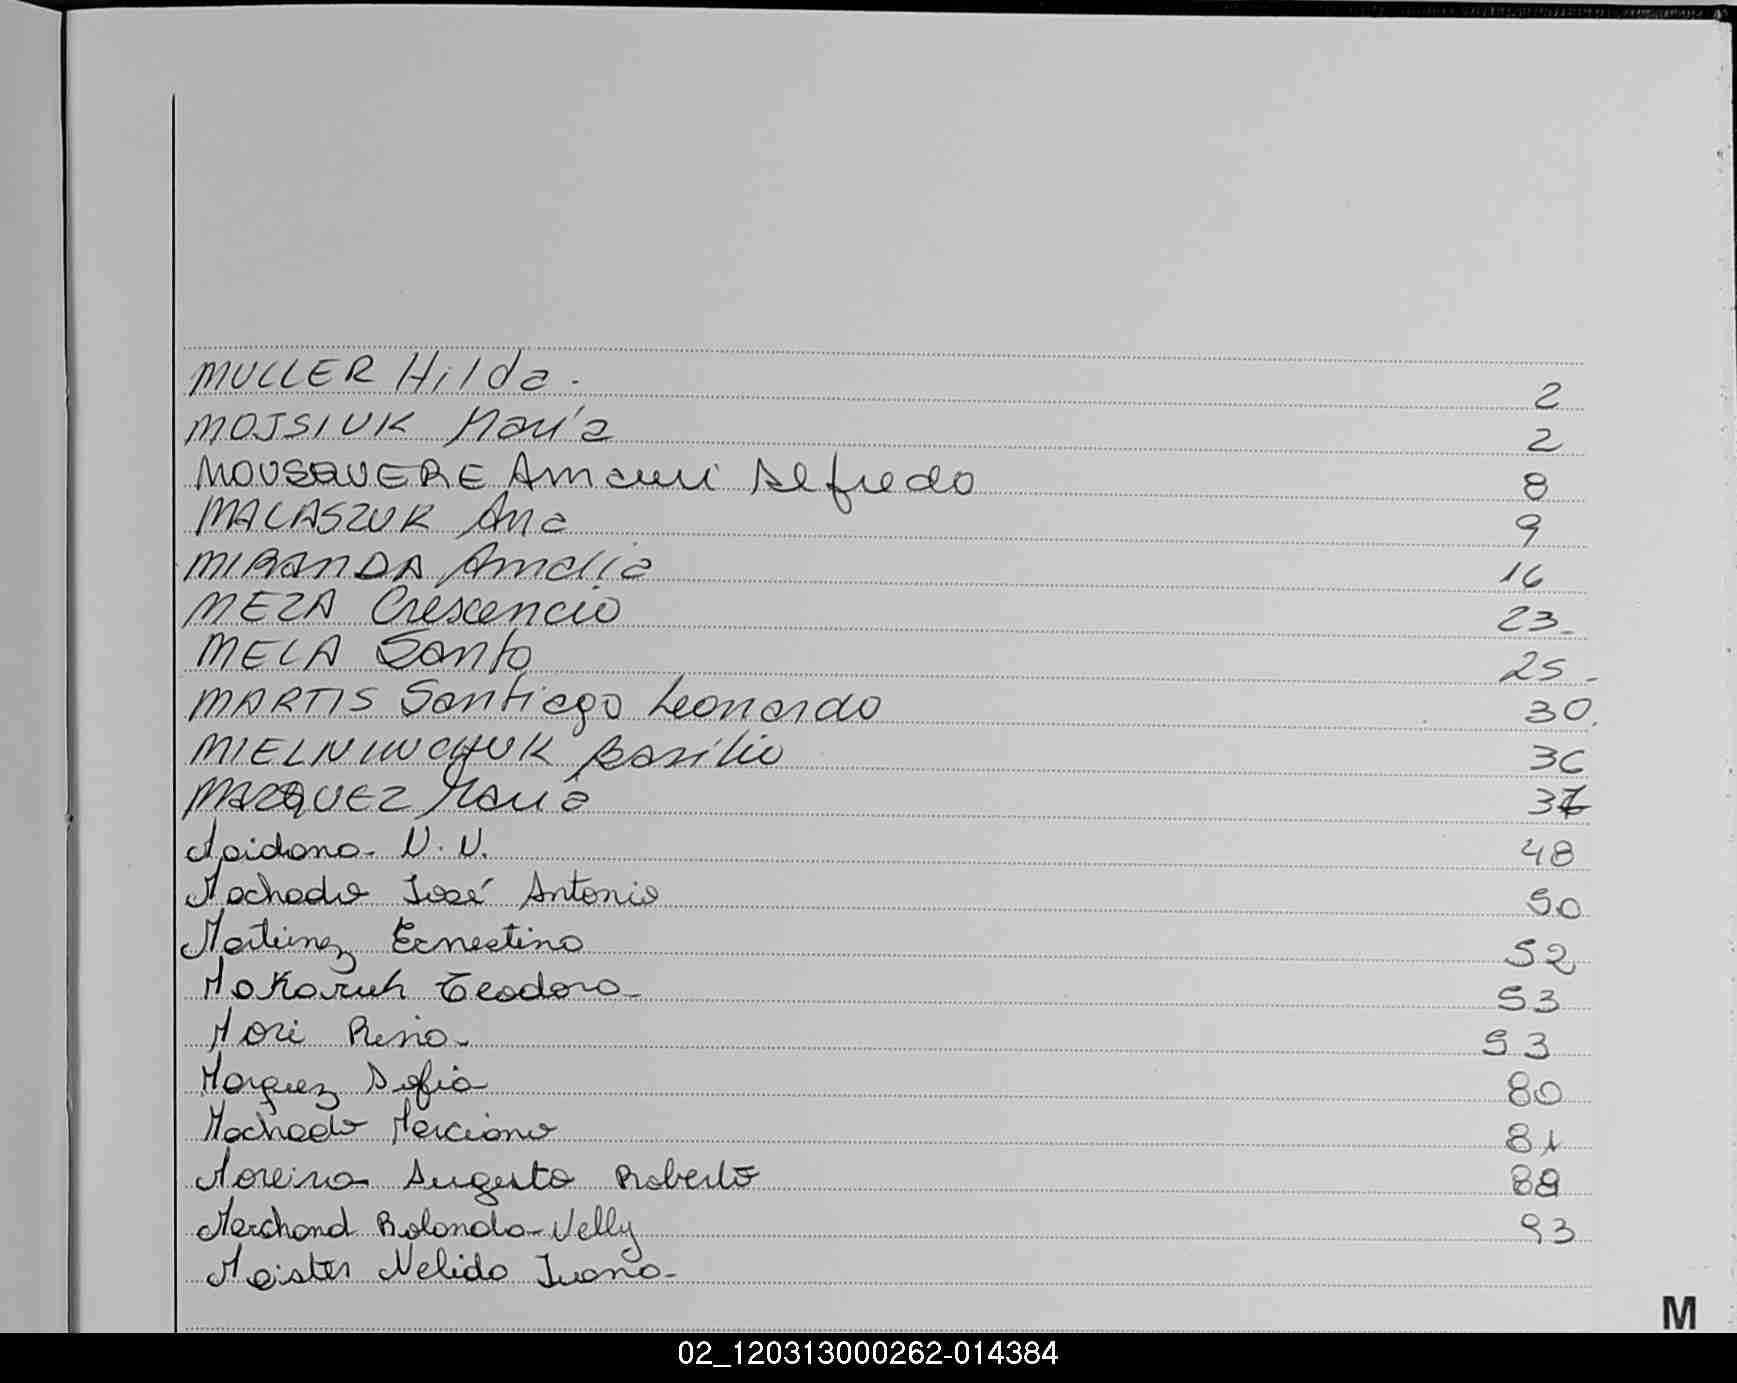 MULLER Hilda. 2
MOJSIUK María 2
MOUSQUERE Amauri Alfredo 8
MALASZUK Ana 9
MIRANDA Amalia 16
MEZA Crescencio 23-
MELA Santo 25-
MARTIS Santiago Leonardo 30.
MIELNIWCHUK Basilio 36
MARQUEZ Maria 37
Maidana- N.N. 48
Machado José Antonio 50
Martinez Ernestina 52
Makaruk Teodora- 53
Mori Rena- 53
Marquez Sofia 80
Machado Marciano 81
Moreira Augusto Roberto 88
Marchand Rolando-Nelly 93
Meister Nelida Juana-
M
02_120313000262-014384